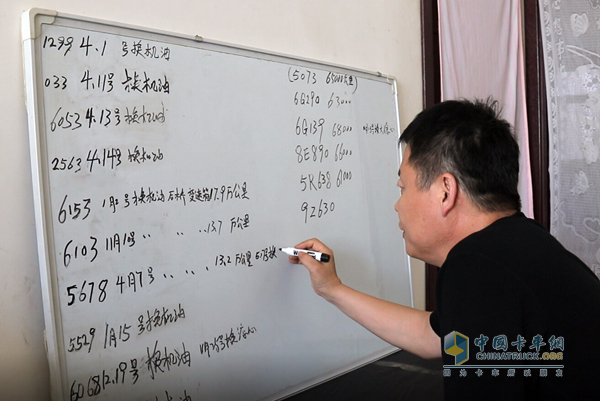 1299 4.1 号换机油
033 4.11号换机油
6053 4.13号换机油
2563 4.14号换机油
6153 1月2号换机油后桥变速箱17.9万公里
6103 11月1号 〃 〃 〃 13.7 万公里
5678 4月7号 〃 〃 〃 〃 13.2 万公里
5529 1月15号换机油
6068 12.19号换机油
(5073 65000公里
6G290 63000
6G139 68000
8E890 66000
5R638 61000
92630
中国卡车网
CHINATRUCK.ORG
因为卡车所以朋友